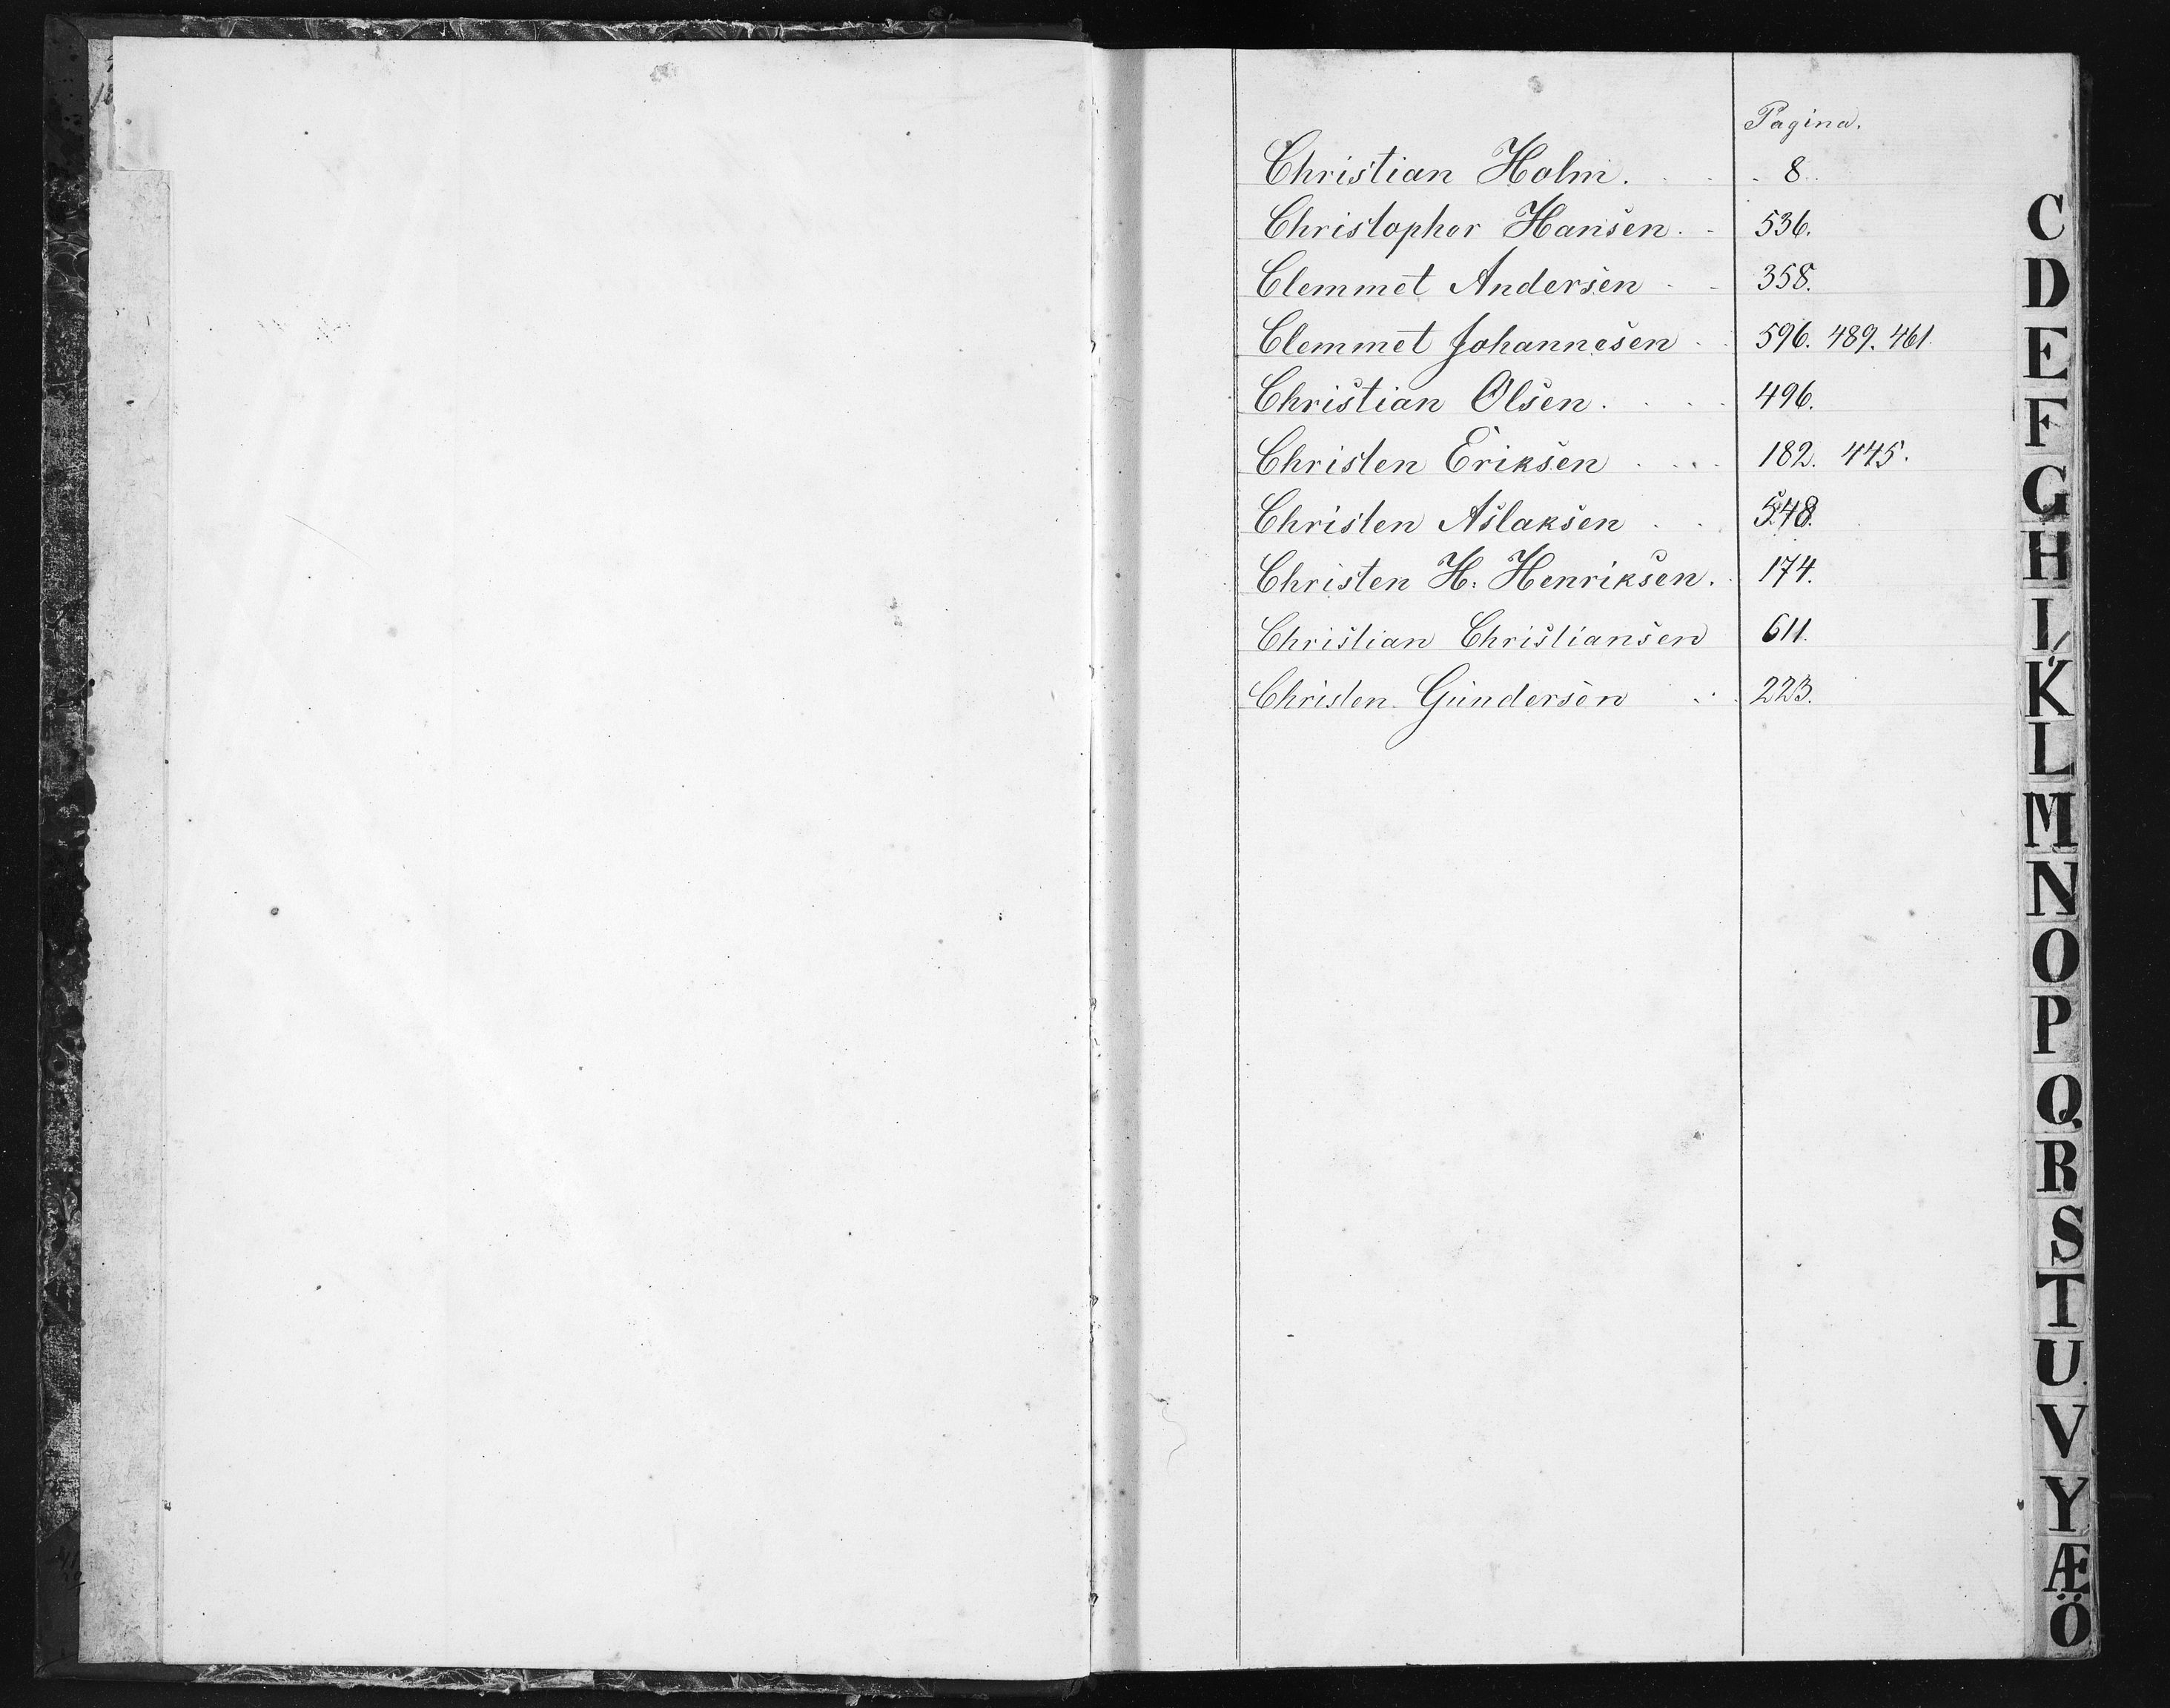 Pagina.
Christian Holm. . . . 8.
Christopher Hansen. . 536.
Clemmet Andersen . . 358.
Clemmet Johannesen . . 596. 489. 461.
Christian Olsen. . . . 496.
Christen Eriksen . . . 182. 445.
Christen Aslaksen . . 548.
Christen H. Henriksen. . 174.
Christian Christiansen 611.
Christen Gundersen . . 223.
C
D
E
F
G
H
I
K
L
M
N
O
P
Q
R
S
T
U
V
Y
Æ
Ö